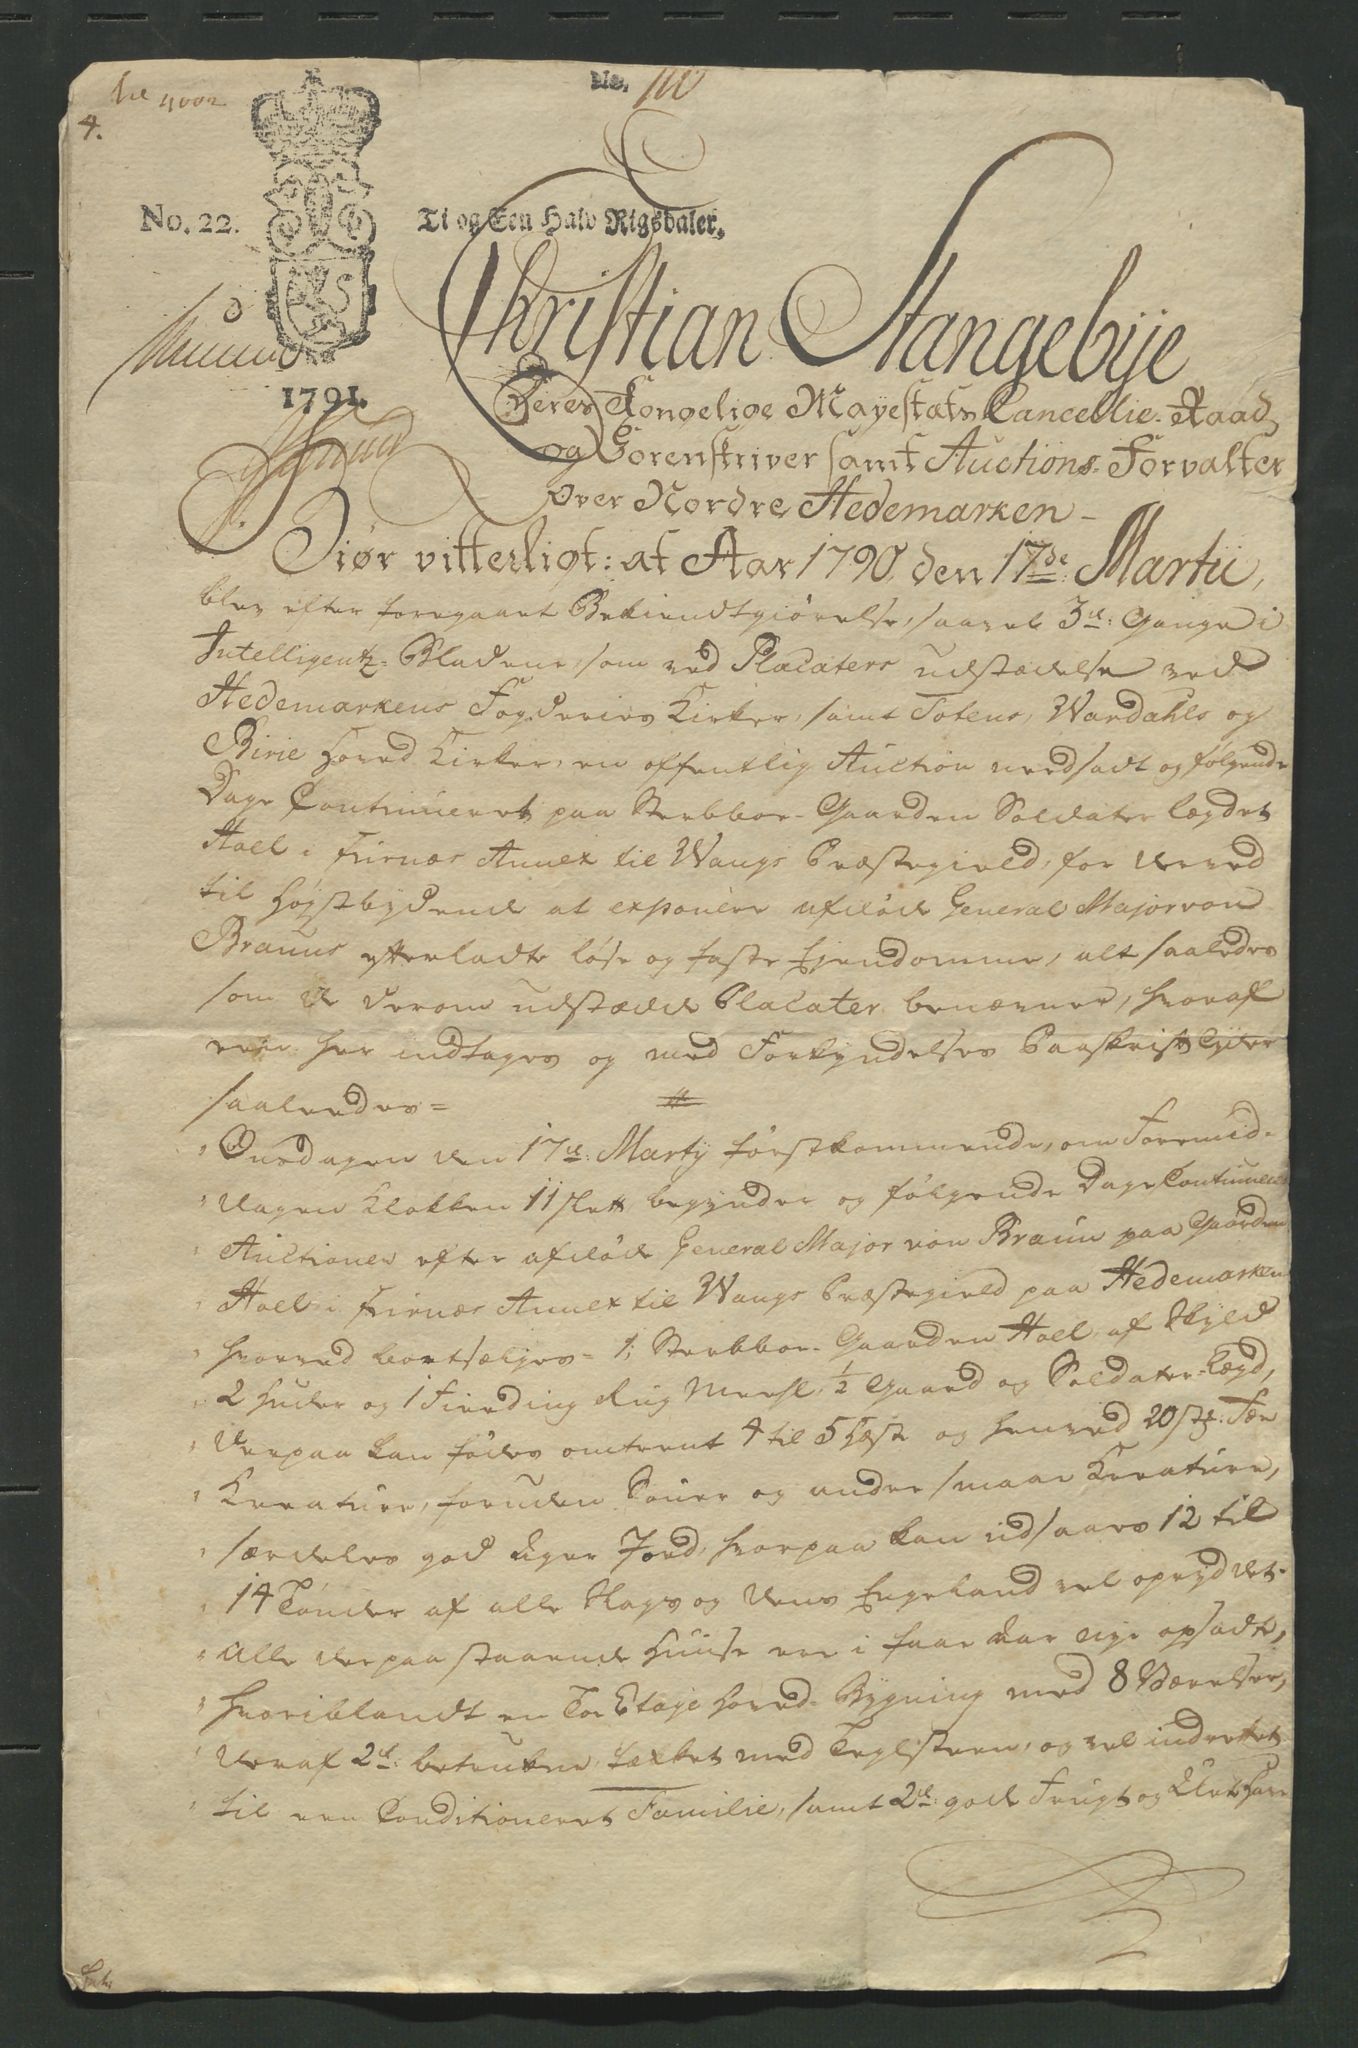 No.
4.
No. 22.
Ti og Een Halv Rigsdaler.
1791.
Christian Stangebÿe
Deres Kongelige Mayestæts Cancellie-Raad
og Sorenskriver samt Auctions-Forvalter
over Nordre Hedemarken-
Giør vitterligt: at Aar 1790, den 17de Martii,
blev efter foregaaet Bekiendtgiørelse, saavel 3de: Gange i
Intelligentz-Bladene, som ved Placaters udstædelse ved
Hedemarkens Fogderies Kirker, samt Totens, Wardahls og
Birie Hoved Kirker, en offentlig Auction nædsadt og følgende
Dage Continueret paa Sterbboe-Gaarden Soldater lægdet
Hoel i Furnæs Annex til Wangs Præstegield, for derved
til Høystbydende at exponere afdøde General Major von
Brauns efterladte løse og faste Ejendomme, alt saaledes
som de derom udstædde Placater benævner, hvoraf
een her indtages og med Forkyndelses Paaskrift lyder
saaledes=
" Onsdagen den 17de: Martÿ førstkommende, om Formid-
" dagen Klokken 11 slett begynder og følgende Dage Continueres
" Auctionen efter afdøde General Major von Braun paa Gaarden
" Hoel i Furnæs Annex til Wangs Præstegield paa Hedemarken
" hvorved bortsælges= 1; Sterbboe-Gaarden Hoel, af Skyld
" 2 Huder og 1 Fierding Rug Meehl, 1/2 Gaard og Soldater-Lægd,
" derpaa kan fødes omtrent 4 til 5 Hæste og henved 20 stk: Fæe
" Kreature, foruden Souer og andre smaae Kreature,
" særdeles god Ager Jord, hvorpaa kan udsaaes 12 til
" 14 Tønder af alle Slags og dens Engeland vel oprÿddet.
" Alle derpaa staaende Huuse ere i faae Aar nye opsadte,
" hvoriblandt en Toe Etage Hoved-Bygning med 8 Værelser,
" deraf 2de: betrukne, tækket med Teglsteen, og vel indrettet
" til een Conditioneret Familie, samt 2de: gode Frugt og